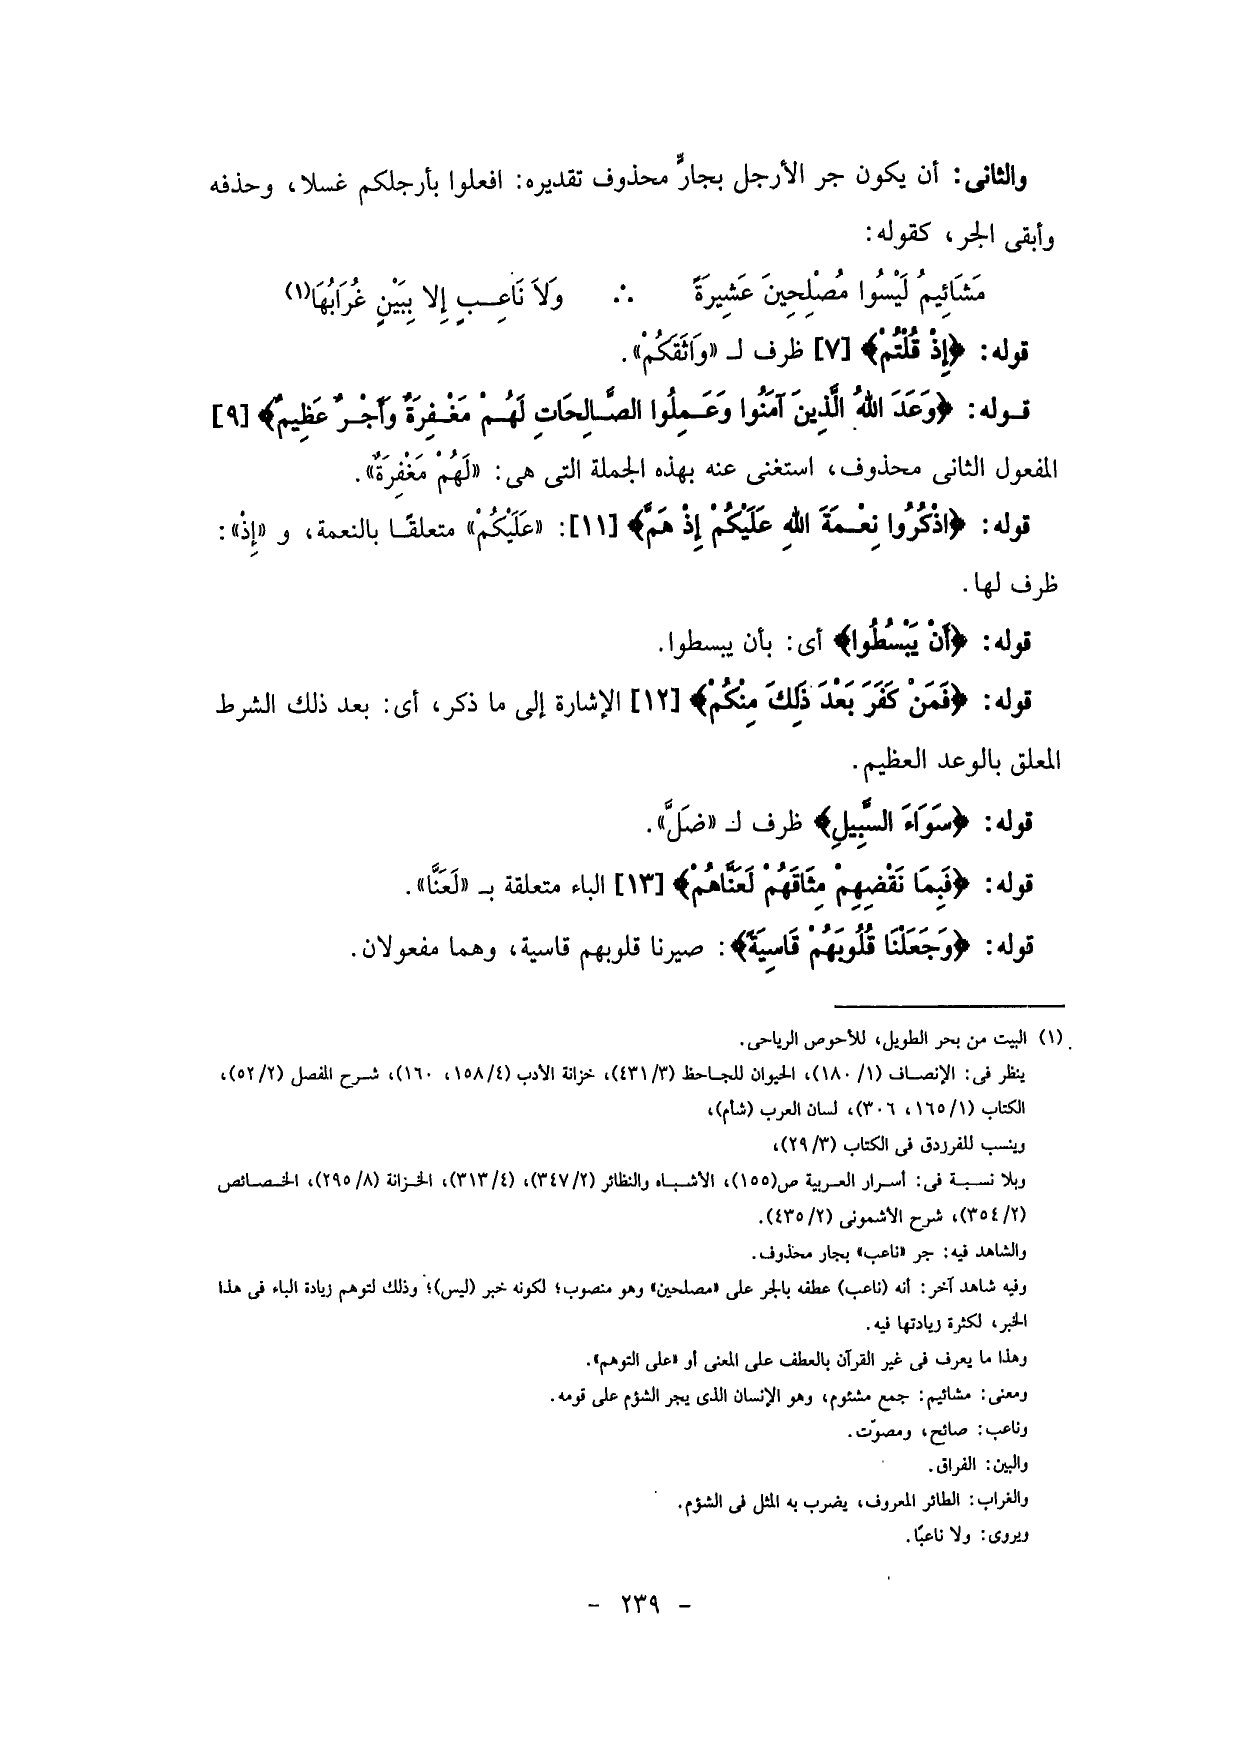 والثانى: أن يكون جر الأرجل بجارٍّ محذوف تقديره: افعلوا بأرجلكم غسلا، وحذفه
وأبقى الجر، كقوله:
مَشَائِيمُ لَيْسُوا مُصْلِحِينَ عَشِيرَةً ∴ وَلَا نَاعِـــبٍ إِلا بِبَيْنٍ غُرَابُهَا(١)
قوله: ﴿إِذْ قُلْتُمْ﴾ [٧] ظرف لـ «وَاثَقَكُمْ».
قـوله: ﴿وَعَدَ اللهُ الَّذِينَ آمَنُوا وَعَـمِلُوا الصَّـالِحَاتِ لَهُـمْ مَغْـفِرَةٌ وَأَجْـرٌ عَظِيمٌ﴾ [٩]
المفعول الثانى محذوف، استغنى عنه بهذه الجملة التى هى: «لَهُمْ مَغْفِرَةٌ».
قوله: ﴿اذْكُرُوا نِعْـمَةَ اللهِ عَلَيْكُمْ إِذْ هَمَّ﴾ [١١]: «عَلَيْكُمْ» متعلقًـا بالنعمة، و «إِذْ»:
ظرف لها.
قوله: ﴿أَنْ يَبْسُطُوا﴾ أى: بأن يبسطوا.
قوله: ﴿فَمَنْ كَفَرَ بَعْدَ ذَلِكَ مِنْكُمْ﴾ [١٢] الإشارة إلى ما ذكر، أى: بعد ذلك الشرط
المعلق بالوعد العظيم.
قوله: ﴿سَوَاءَ السَّبِيلِ﴾ ظرف لـ «ضَلَّ».
قوله: ﴿فَبِمَا نَقْضِهِمْ مِثَاقَهُمْ لَعَنَّاهُمْ﴾ [١٣] الباء متعلقة بـ «لَعَنَّا».
قوله: ﴿وَجَعَلْنَا قُلُوبَهُمْ قَاسِيَةً﴾: صيرنا قلوبهم قاسية، وهما مفعولان.
(١) البيت من بحر الطويل، للأحوص الرياحى.
ينظر فى: الإنصـاف (١/ ١٨٠)، الحيوان للجـاحظ (٣/ ٤٣١)، خزانة الأدب (٤/ ١٥٨، ١٦٠)، شـرح المفصل (٢/ ٥٢)،
الكتاب (١/ ١٦٥، ٣٠٦)، لسان العرب (شأم)،
وينسب للفرزدق فى الكتاب (٣/ ٢٩)،
وبلا نسـبـة فى: أسـرار العـربية ص(١٥٥)، الأشـبـاه والنظائر (٢/ ٣٤٧)، (٤/ ٣١٣)، الخـزانة (٨/ ٢٩٥)، الخـصـائص
(٢/ ٣٥٤)، شرح الأشمونى (٢/ ٤٣٥).
والشاهد فيه: جر «ناعب» بجار محذوف.
وفيه شاهد آخر: أنه (ناعب) عطفه بالجر على «مصلحين» وهو منصوب؛ لكونه خبر (ليس)؛ وذلك لتوهم زيادة الباء فى هذا
الخبر، لكثرة زيادتها فيه.
وهذا ما يعرف فى غير القرآن بالعطف على المعنى أو «على التوهم».
ومعنى: مشائيم: جمع مشئوم، وهو الإنسان الذى يجر الشؤم على قومه.
وناعب: صائح، ومصوّت.
والبين: الفراق.
والغراب: الطائر المعروف، يضرب به المثل فى الشؤم.
ويروى: ولا ناعبًا.
- ٢٣٩ -